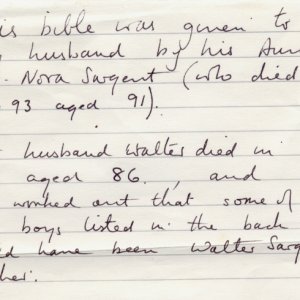 is bible was given to
husband by his Aun
. Nora Sargent (who died
93 aged 91).
husband Walter died in
aged 86., and
worked out that some of
boys listed in the back
d have been Walter Sarg
her.